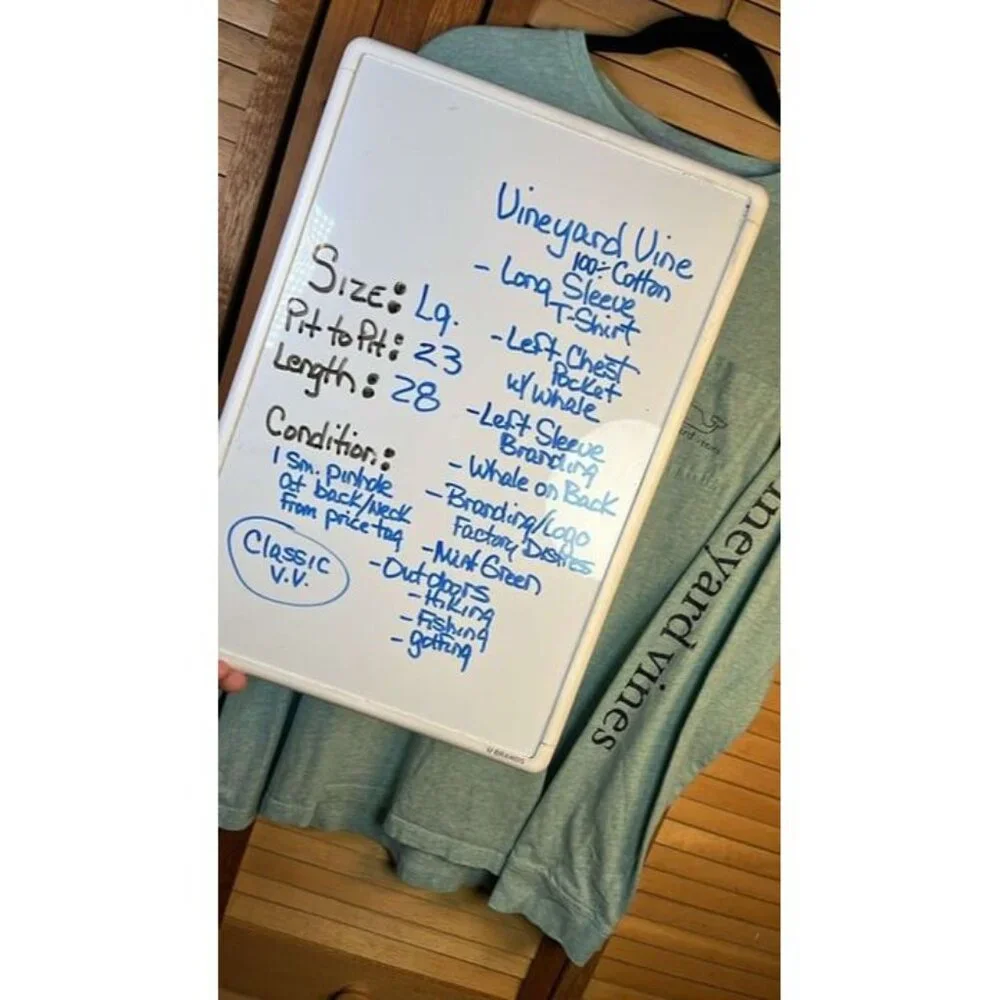 Vineyard Vine
100% Cotton
- Long Sleeve
T-Shirt
- Left Chest
Pocket
w/ Whale
- Left Sleeve
Branding
- Whale on Back
- Branding/Logo
Factory Distress
- Mint Green
- Outdoors
- Hiking
- Fishing
- golfing
Size: Lg.
Pit to Pit: 23
Length: 28
Condition:
1 Sm. pinhole
at back/Neck
from price tag
Classic
V.V.
U BRANDS
ineyard vines